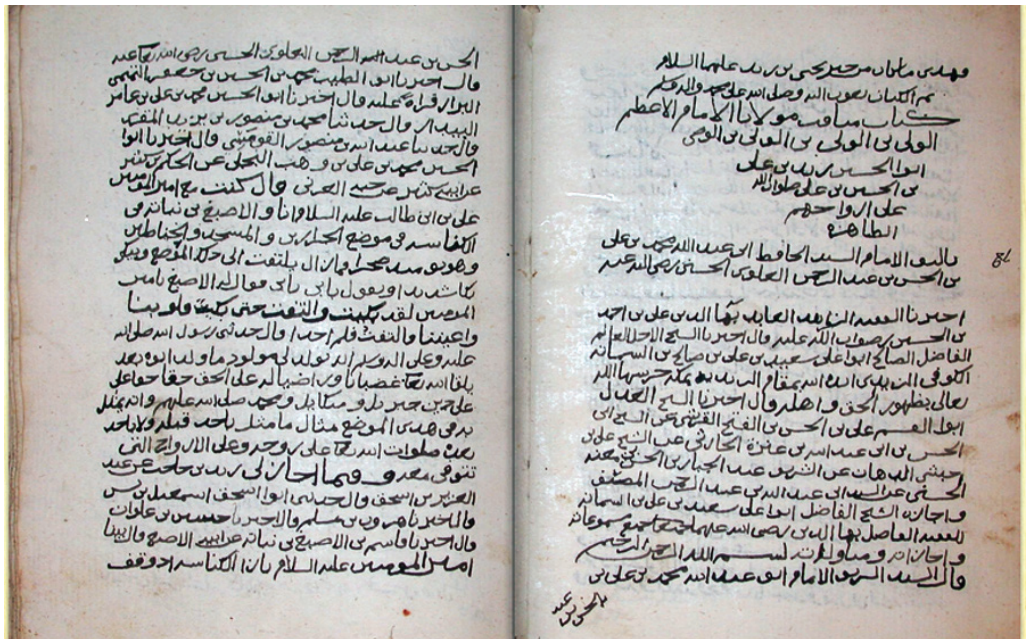 وفهد بن ماهان مر حديد يحيى بن زيد عليهما السلام
تم الكتاب بعون الله وصلى الله على محمد واله وسلم
كتاب مناقب مولانا الامام الاعظم
الولي بن الولي بن الولي بن الوصي
ابوا الحسين زيد بن علي
بن الحسين بن علي صلوات الله
على ارواحهم
الطاهره
تاليف الامام السيد الحافظ ابي عبد الله محمد بن علي
بن الحسن بن عبد الرحمن العلوي الحسني رضي الله عنه
اخبرنا الفقيه الزاهد العابد بهآ الدين علي بن احمد
بن الحسين رضوان الله عليه قال اخبرنا الشيخ الاجل العالم
الفاضل الصالح ابوا علي سعيد بن علي بن صالح بن السمانه
الكوفي الزيدي ايده الله بمقام الزيديه بمكه حرسها الله
تعالى بظهور الحق واهله قال اخبرنا الشيخ العدل
ابوا القسم علي بن الحسن بن الفتح القرشي عن الشيخ ابي
الحسن بن ابي عبد الله بن عنزة الحارثي عن الشيخ علي بن
حبشي الدهان عن الشريف عبد الجبار بن الحسن بن معيه
الحسني عن السيد ابي عبد الله بن عبد الرحمن المصنف
واجازه الشيخ الفاضل ابوا علي سعيد بن علي بن السمانه
للفقيه الفاضل بها الدين رضي الله عنهما جميع مسموعاته
واجازاته ومناولاته بسم الله الرحمن الرحيم
قال السيد الشريف الامام ابو عبد الله محمد بن علي بن
الحسن بن عبد
الحسن بن عبد الرحمن العلوي الحسني رضي الله تعا عنه
قال اخبرنا ابو الطيب محمد بن الحسين بن جعفر التيمي
البزاز قراة عليه قال اخبرنا ابو الحسين محمد بن علي بن عامر
البندار قال حدثنا محمد بن منصور بن يزيد المقري
قال حدثنا عبد الله بن منصور القومسي قال اخبرنا ابوا
الحسين محمد بن علي بن وهب البجلي عن الحكم بن كثير
عن ابيه كثير عن حبه العرني قال كنت مع امير المومنين
علي بن ابي طالب عليه السلام انا والاصبغ بن نباته في
الكناسه في موضع الجزارين والمسجد والخياطين
وهو يوميذ صحرا فما زال يلتفت الى ذلك الموضع ويبكي
بكا شديدا ويقول بابي بابي فقال له الاصبغ يامير
المومنين لقد بكيت والتفت حتى بكت قلوبنا
واعيننا والتفت فلم ار احدا قال حدثني رسول الله صلى الله
عليه وعلى اله وسلم انه يولد لي مولود ما ولد ابوه بعد
يلقا الله تعا غضبانا وراضيا له على الحق حقا حقا على
على دين جبريل وميكايل ومحمد صلى الله عليهم وانه يمثل
به في هذا الموضع مثال ما مثل باحد قبله ولا باحد
بعده صلوات الله تعا على روحه وعلى الارواح التي
تتوفى معه وفيما اجاز لي زيد بن حاجب عن عبد
العزيز بن اسحق قال حدثني ابوا اسحق اسمعيل بن يس
قال اخبرنا هرون بن مسلم قال اخبرنا حسين بن علوان
قال اخبرنا قاسم بن الاصبغ بن نباته عن ابيه الاصبغ قال بينا
امير المومنين عليه السلام بازا الكناسه اذ وقف